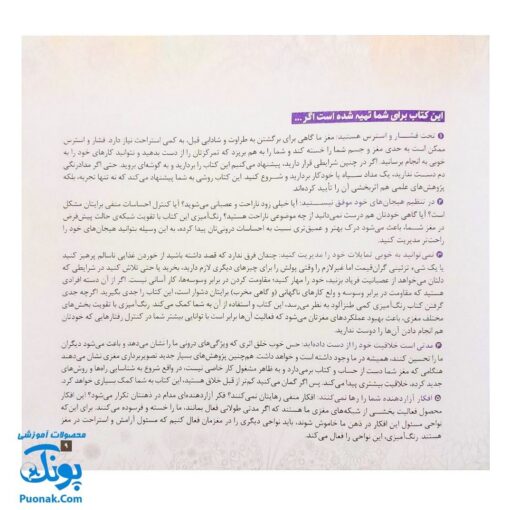 این کتاب برای شما تهیه شده است اگر ...
۱ تحت فشار و استرس هستید: مغز ما گاهی برای برگشتن به طراوت و شادابی قبل، به کمی استراحت نیاز دارد. فشار و استرس
ممکن است به حدی مغز و جسم شما را خسته کند و شما را به هم بریزد که تمرکزتان را از دست بدهید و نتوانید کارهای خود را به
خوبی به انجام برسانید. اگر در چنین شرایطی قرار دارید، پیشنهاد می‌کنیم این کتاب را بردارید و به گوشه‌ای بروید. حتی اگر مدادرنگی
دم دست ندارید، یک مداد سیاه یا خودکار بردارید و شروع کنید. این کتاب روشی به شما پیشنهاد می‌کند که نه تنها تجربه، بلکه
پژوهش‌های علمی هم اثربخشی آن را تأیید کرده‌اند.
۲ در تنظیم هیجان‌های خود موفق نیستید: آیا خیلی زود ناراحت و عصبانی می‌شوید؟ آیا کنترل احساسات منفی برایتان مشکل
است؟ آیا گاهی خودتان هم درست نمی‌دانید از چه موضوعی ناراحت هستید؟ رنگ‌آمیزی این کتاب با تقویت شبکه‌ی حالت پیش‌فرض
در مغز شما، باعث می‌شود درک بهتر و عمیق‌تری نسبت به احساسات درونی‌تان پیدا کرده، به این وسیله بتوانید هیجان‌های خود را
راحت‌تر مدیریت کنید.
۳ نمی‌توانید به خوبی تمایلات خود را مدیریت کنید: چندان فرق ندارد که قصد داشته باشید از خوردن غذایی ناسالم پرهیز کنید
یا یک شیء تزئینی گران‌قیمت اما غیرلازم را وقتی پولش را برای چیزهای دیگری لازم دارید، نخرید یا حتی تلاش کنید در شرایطی که
دلتان می‌خواهد از عصبانیت فریاد بزنید، خود را مهار کنید؛ مقاومت کردن در برابر وسوسه‌ها، کار آسانی نیست. اگر از آن دسته افرادی
هستید که مقاومت در برابر وسوسه و ولع کارهای ناگهانی (و گاهی مخرب) برایتان دشوار است، این کتاب را جدی بگیرید. اگرچه جدی
گرفتن کتاب رنگ‌آمیزی کمی طنزآلود به نظر می‌رسد، این کتاب و استفاده از آن به شما کمک می‌کند. رنگ‌آمیزی با تقویت بخش‌های
مختلف مغزی، باعث بهبود عملکردهای مغزتان می‌شود که فعالیت آن‌ها برابر است با توانایی بیشتر شما در کنترل رفتارهایی که خودتان
هم انجام دادن آن‌ها را دوست ندارید.
۴ مدتی است خلاقیت خود را از دست داده‌اید: حس خوب خلق اثری که ویژگی‌های درونی ما را نشان می‌دهد و باعث می‌شود دیگران
ما را تحسین کنند، همیشه در ما وجود داشته است و خواهد داشت. هم‌چنین پژوهش‌های بسیار جدید تصویربرداری مغزی نشان می‌دهند
هنگامی که مغز شما دست از حساب و کتاب برمی‌دارد و به ظاهر مشغول کار خاصی نیست، در واقع شروع به شناسایی راه‌ها و روش‌های
جدید کرده، خلاقیت بیشتری پیدا می‌کند. پس اگر گمان می‌کنید کم‌تر از قبل خلاق هستید، این کتاب به شما کمک بسیاری خواهد کرد.
۵ افکار آزاردهنده شما را رها نمی‌کنند: افکار منفی رهایتان نمی‌کنند؟ فکر آزاردهنده‌ای مدام در ذهنتان تکرار می‌شود؟ این افکار
محصول فعالیت بخشی از شبکه‌های مغزی ما هستند که اگر مدتی طولانی فعال بمانند، ما را خسته و فرسوده می‌کنند. برای این‌که
نواحی مسئول این افکار در ذهن ما خاموش شوند، باید نواحی دیگری را در مغزمان فعال کنیم که مسئول آرامش و استراحت در مغز
هستند. رنگ‌آمیزی، این نواحی را فعال می‌کند.
۹
محصولات آموزشی
پونک
Puonak.Com